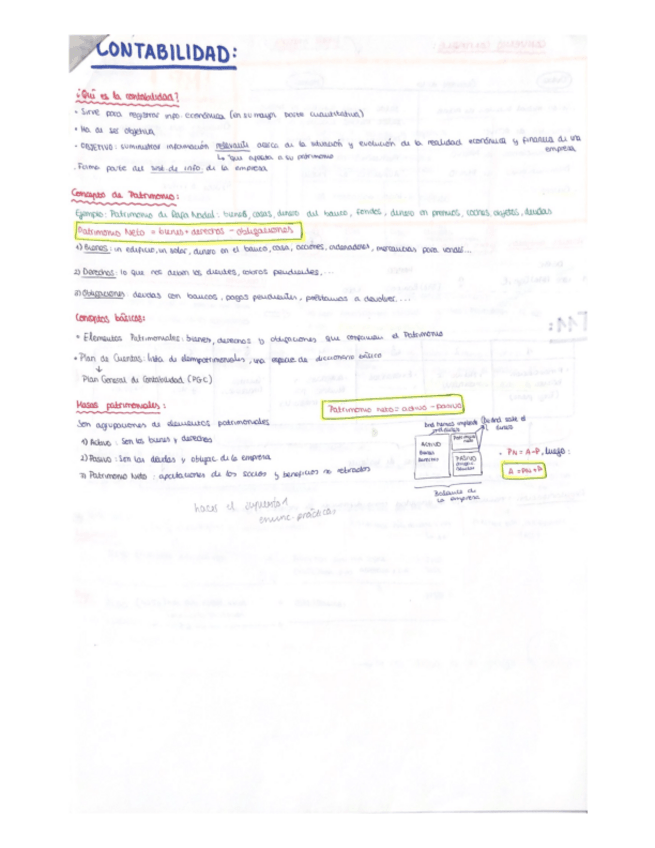 CONTABILIDAD:
¿Qué es la contabilidad?
• Sirve para registrar info. económica (en su mayor parte cuantitativa)
• Ha de ser objetiva
• OBJETIVO: suministrar información relevante acerca de la situación y evolución de la realidad económica y financiera de una empresa
↳ que afecta a su patrimonio
. Forma parte del sist. de info de la empresa
Concepto de Patrimonio:
Ejemplo: Patrimonio de Rafa Nadal: bienes, casas, dinero del banco, dinero en premios, coches, deudas
Patrimonio Neto = bienes + derechos - obligaciones
1) Bienes: un edificio, un solar, dinero en el banco, casa, acciones, ordenadores, mercancías para vender...
2) Derechos: lo que nos deben los clientes, cobros pendientes,...
3) Obligaciones: deudas con bancos, pagos pendientes, préstamos a devolver,...
Conceptos básicos:
• Elementos Patrimoniales: bienes, derechos y obligaciones que componen el Patrimonio
• Plan de Cuentas: lista de una especie de diccionario
↓
Plan General de Contabilidad (PGC)
Masas patrimoniales:
Patrimonio neto = activo - pasivo
Son agrupaciones de elementos patrimoniales
1) Activo: Son los bienes y derechos
2) Pasivo: Son las deudas y obligac. de la empresa
3) Patrimonio Neto: aportaciones de los socios y beneficios no retirados
ACTIVO
Bienes
Derechos
Patrimonio neto
PASIVO
Balance de la empresa
• PN = A-P, luego:
A = PN + P
hacer el supuesto